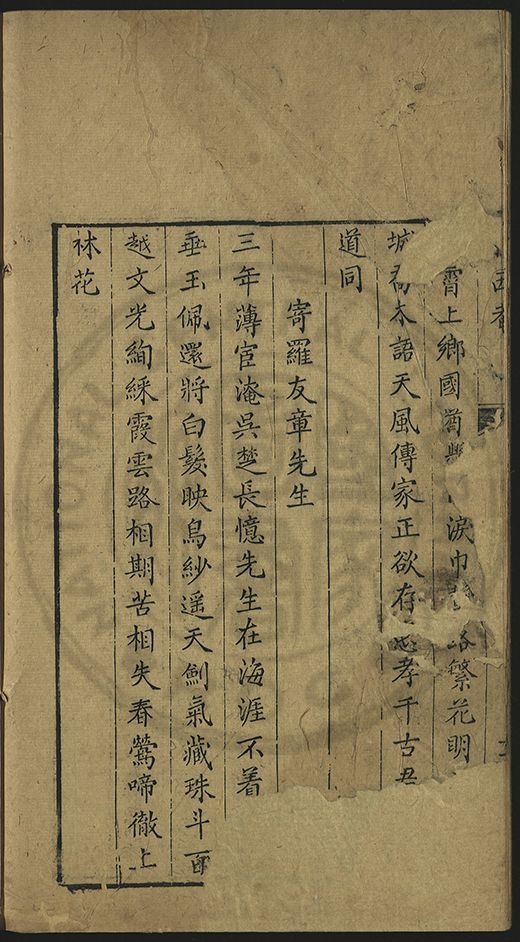 霄上鄉國首 淚巾 繁花明
城 本語天風傳家正欲存忠孝千古君
道同
寄羅友章先生
三年薄宦淹吳楚長憶先生在海涯不着
垂玉佩還將白髮映烏紗遥天劍氣藏珠斗百
越文光絢綵霞雲路相期苦相失春鶯啼徹上
林花